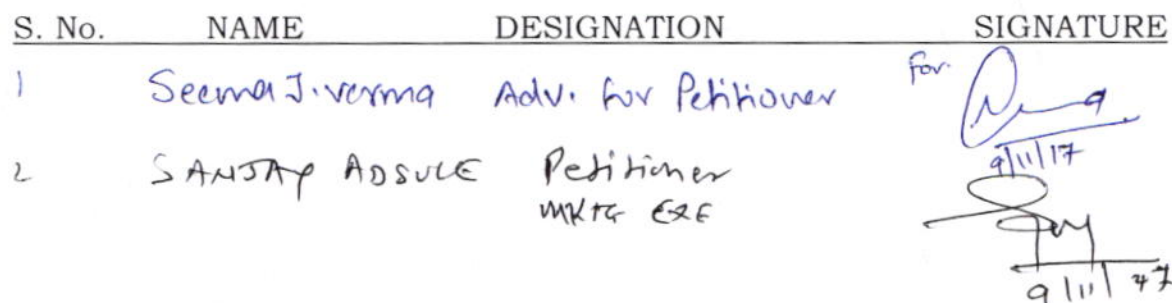 S. No. NAME DESIGNATION SIGNATURE
1 Seema J. verma Adv. for Petitioner For.
9/11/17
2 SANJAY ADSULE Petitioner
MKTG EXE
9/11/17